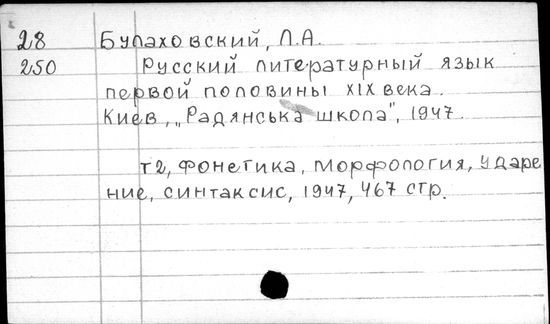 28 Булаховский, Л.А.
250 Русский литературный язык
первой половины XIX века.
Киев, „Радянська школа", 1947.
т2, Фонетика, морфология, ударе
ние, синтаксис, 1947, 467 стр.